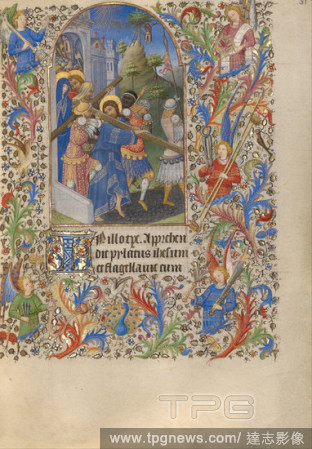 In illo tpe. Apprehen
dit pylatus ihesum
et flagellauit eum
TPG
www.tpgnews.com/ 達志影像